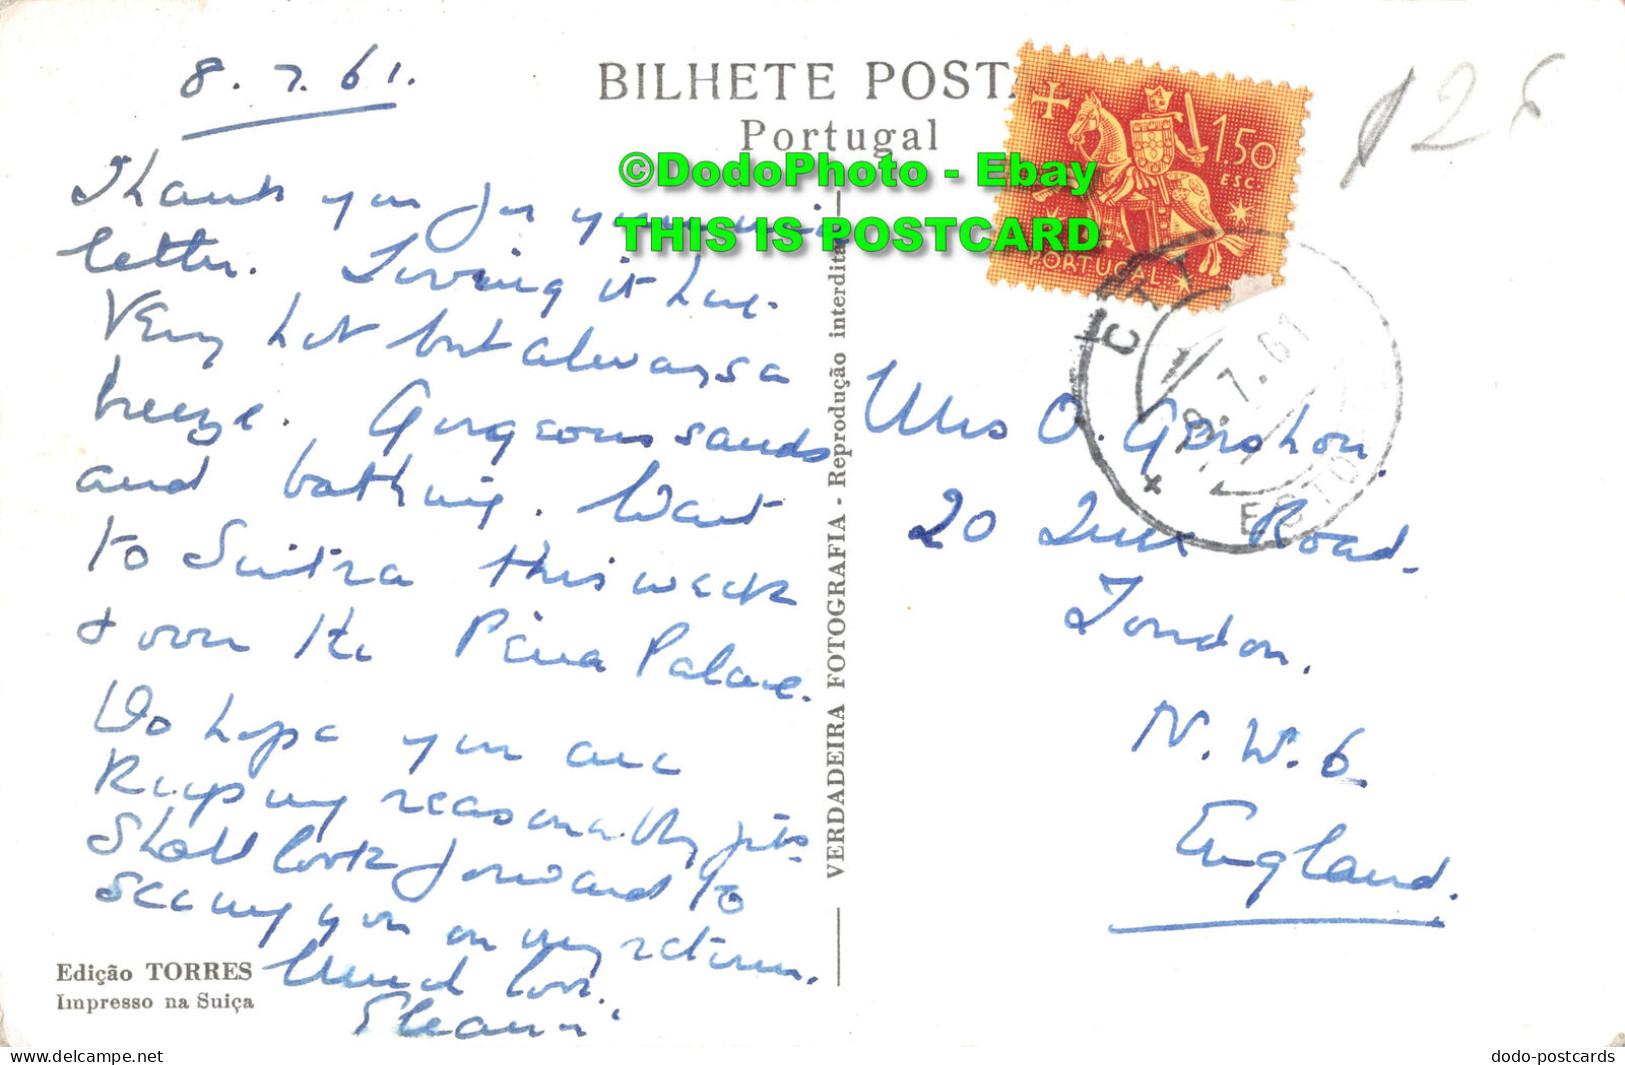 8.7.61.
BILHETE POST
Portugal
©DodoPhoto - Ebay
THIS IS POSTCARD
1$50
ESC.
PORTUGAL
Thank you for your
letter. Loving it here.
Very hot but always a
breeze. Gorgeous sands
and bathing. Want
to Sintra this week
& over the Pena Palace.
Do hope you are
keeping reasonably fit.
Shall look forward to
seeing you on my return.
Much love.
VERDADEIRA FOTOGRAFIA - Reprodução interdita
Mrs O. Gershon.
20 Road.
London.
N.W.6.
England.
8.7.61
Edição TORRES
Impresso na Suiça
delcampe.net
dodo-postcards